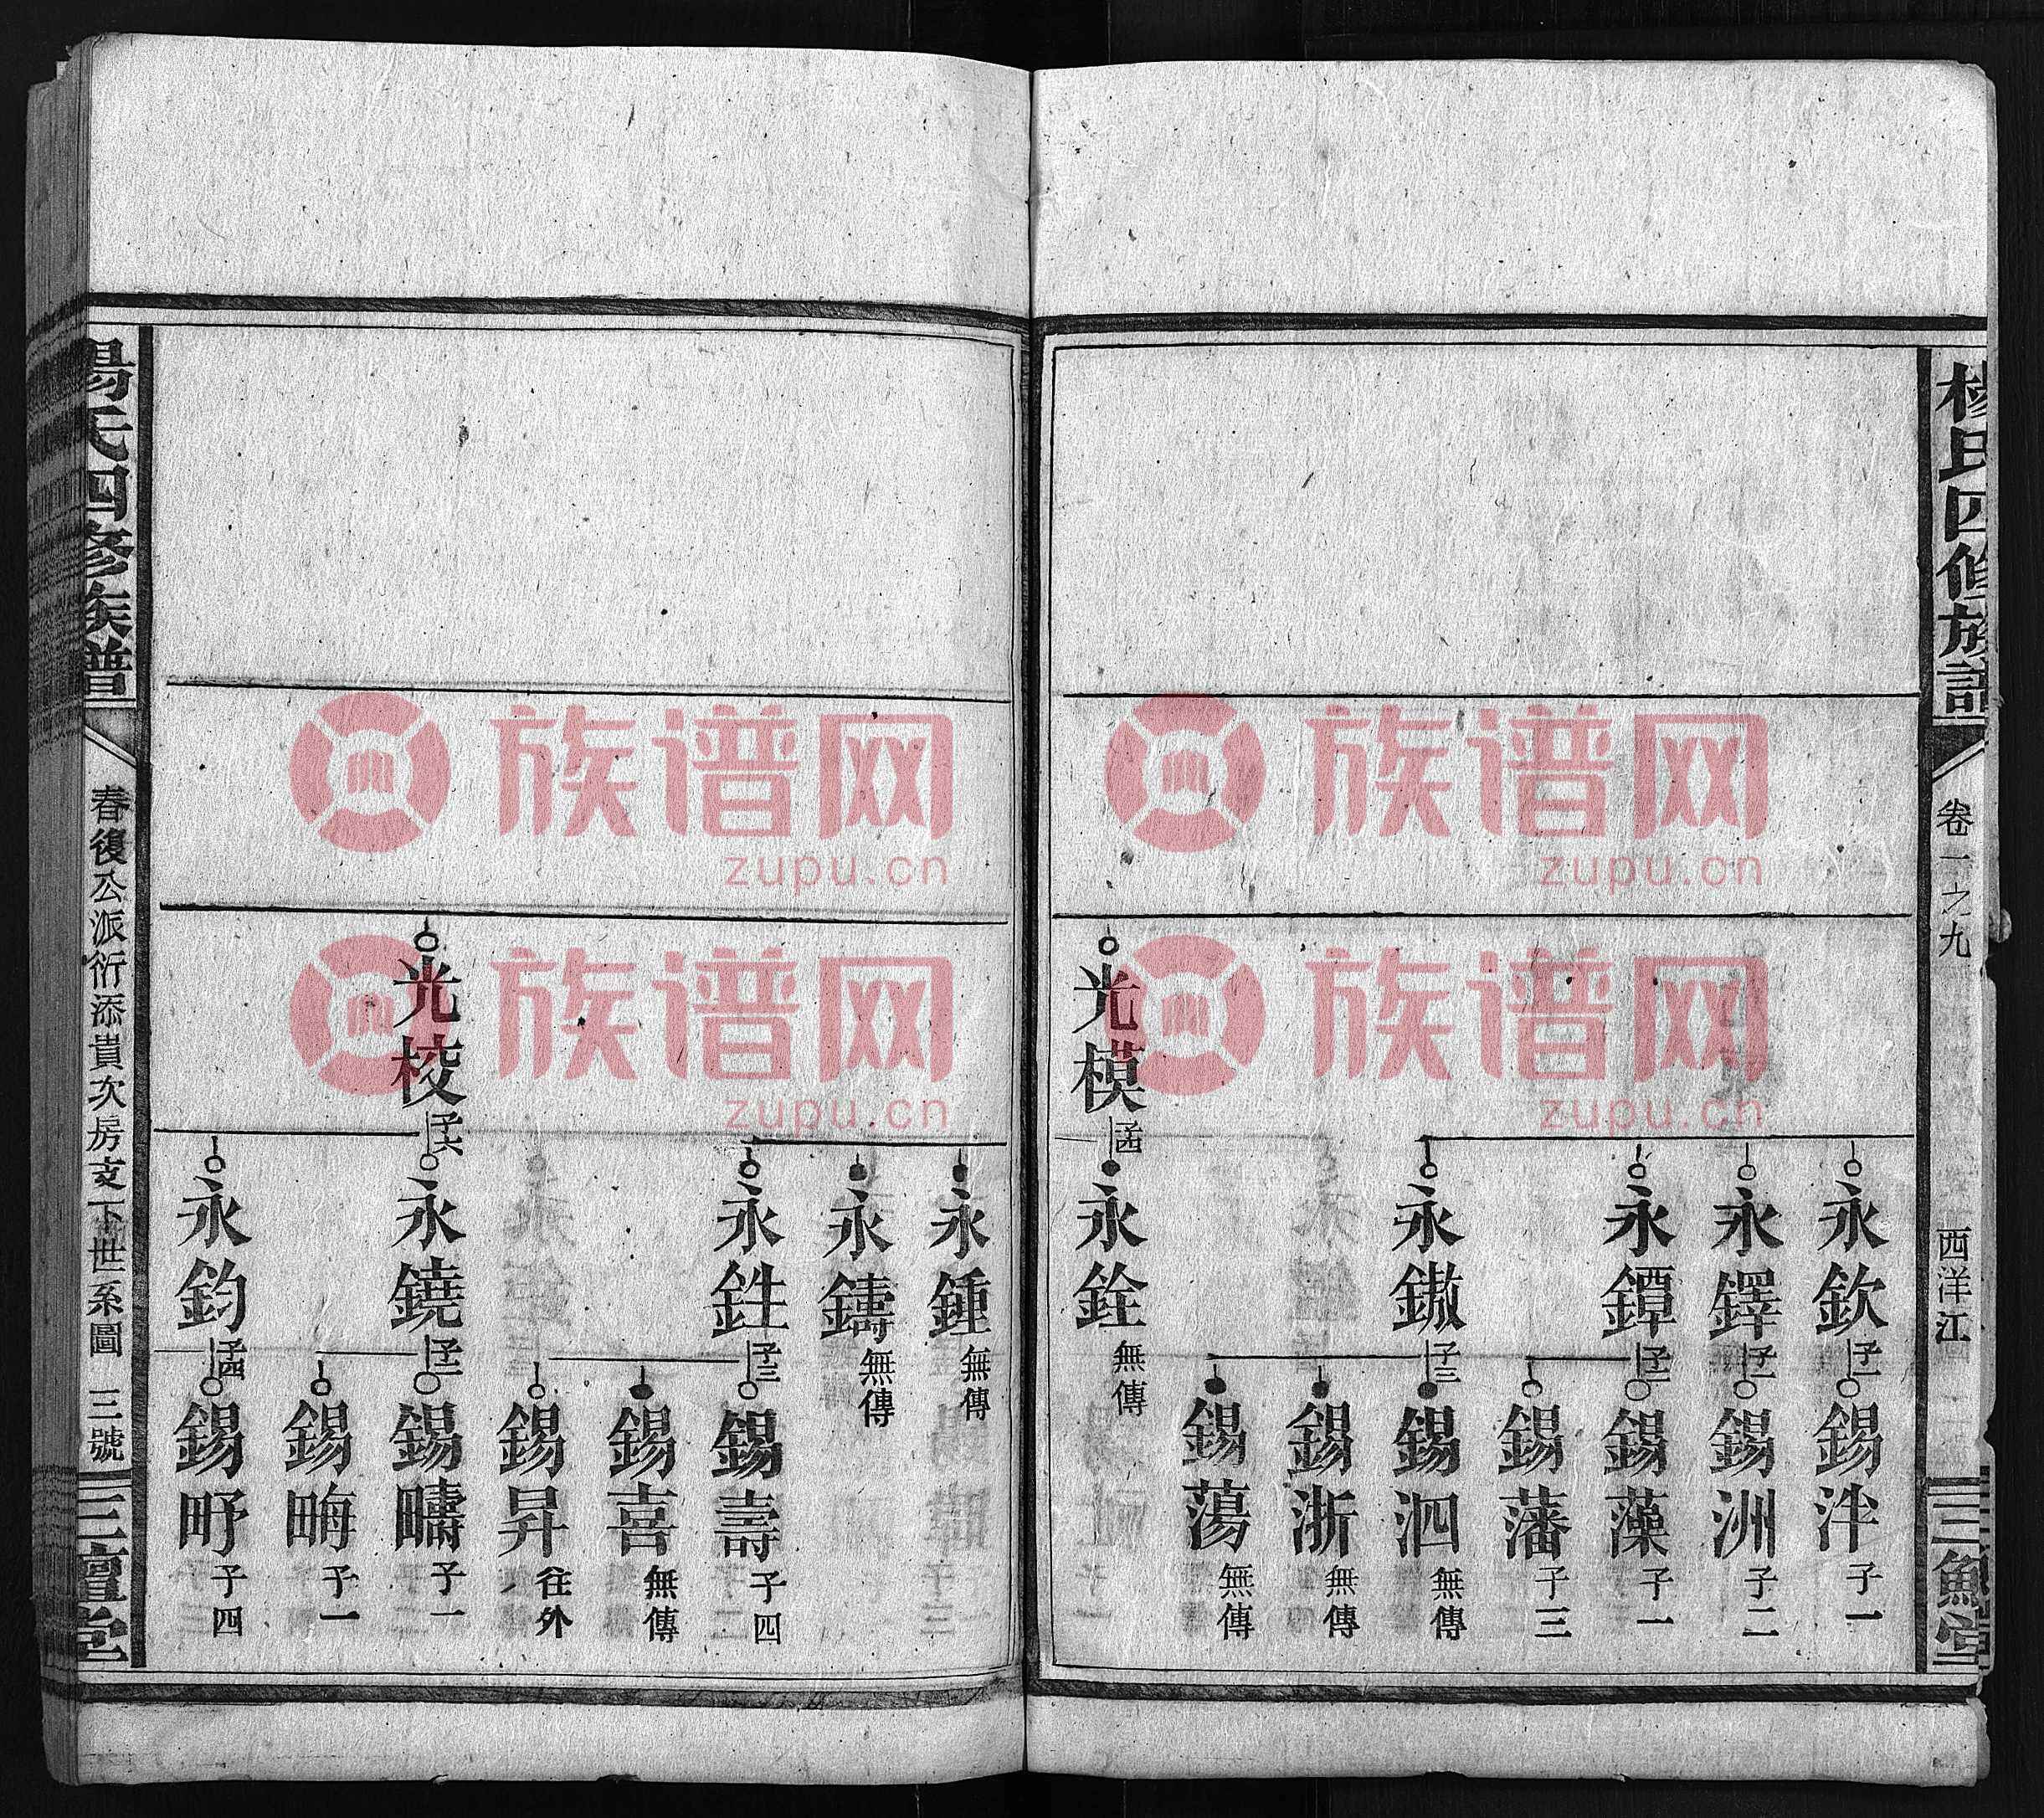 楊氏四修族譜
卷一之九
西洋江
三鱣堂
永欽 子一
錫泮 子一
永鐸 子一
錫洲 子二
永鐔 子二
錫藻 子一
錫藩 子三
永鏾 子三
錫泗 無傳
錫浙 無傳
錫蕩 無傳
光模 子四
永銓 無傳
永鍾 無傳
永鑄 無傳
永鉎 子三
錫壽 子四
錫喜 無傳
錫昇 往外
光校 子六
永鐃 子二
錫疇 子一
錫畮 子一
永鈞 子四
錫野 子四
楊氏四修族譜
春復公派衍添貴次房支下世系圖
三號
三鱣堂
族谱网
zupu.cn
族谱网
zupu.cn
族谱网
zupu.cn
族谱网
zupu.cn